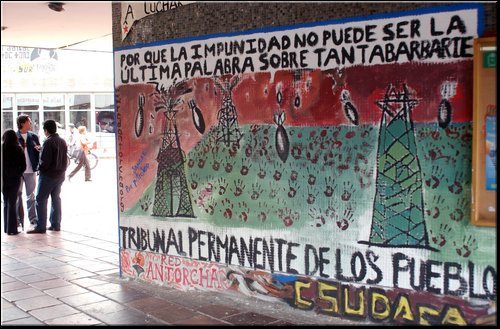 A LUCHAR
POR QUE LA IMPUNIDAD NO PUEDE SER LA
ÚLTIMA PALABRA SOBRE TANTABARBARIE
TRIBUNAL PERMANENTE DE LOS PUEBLO
RED
ANTORCHA